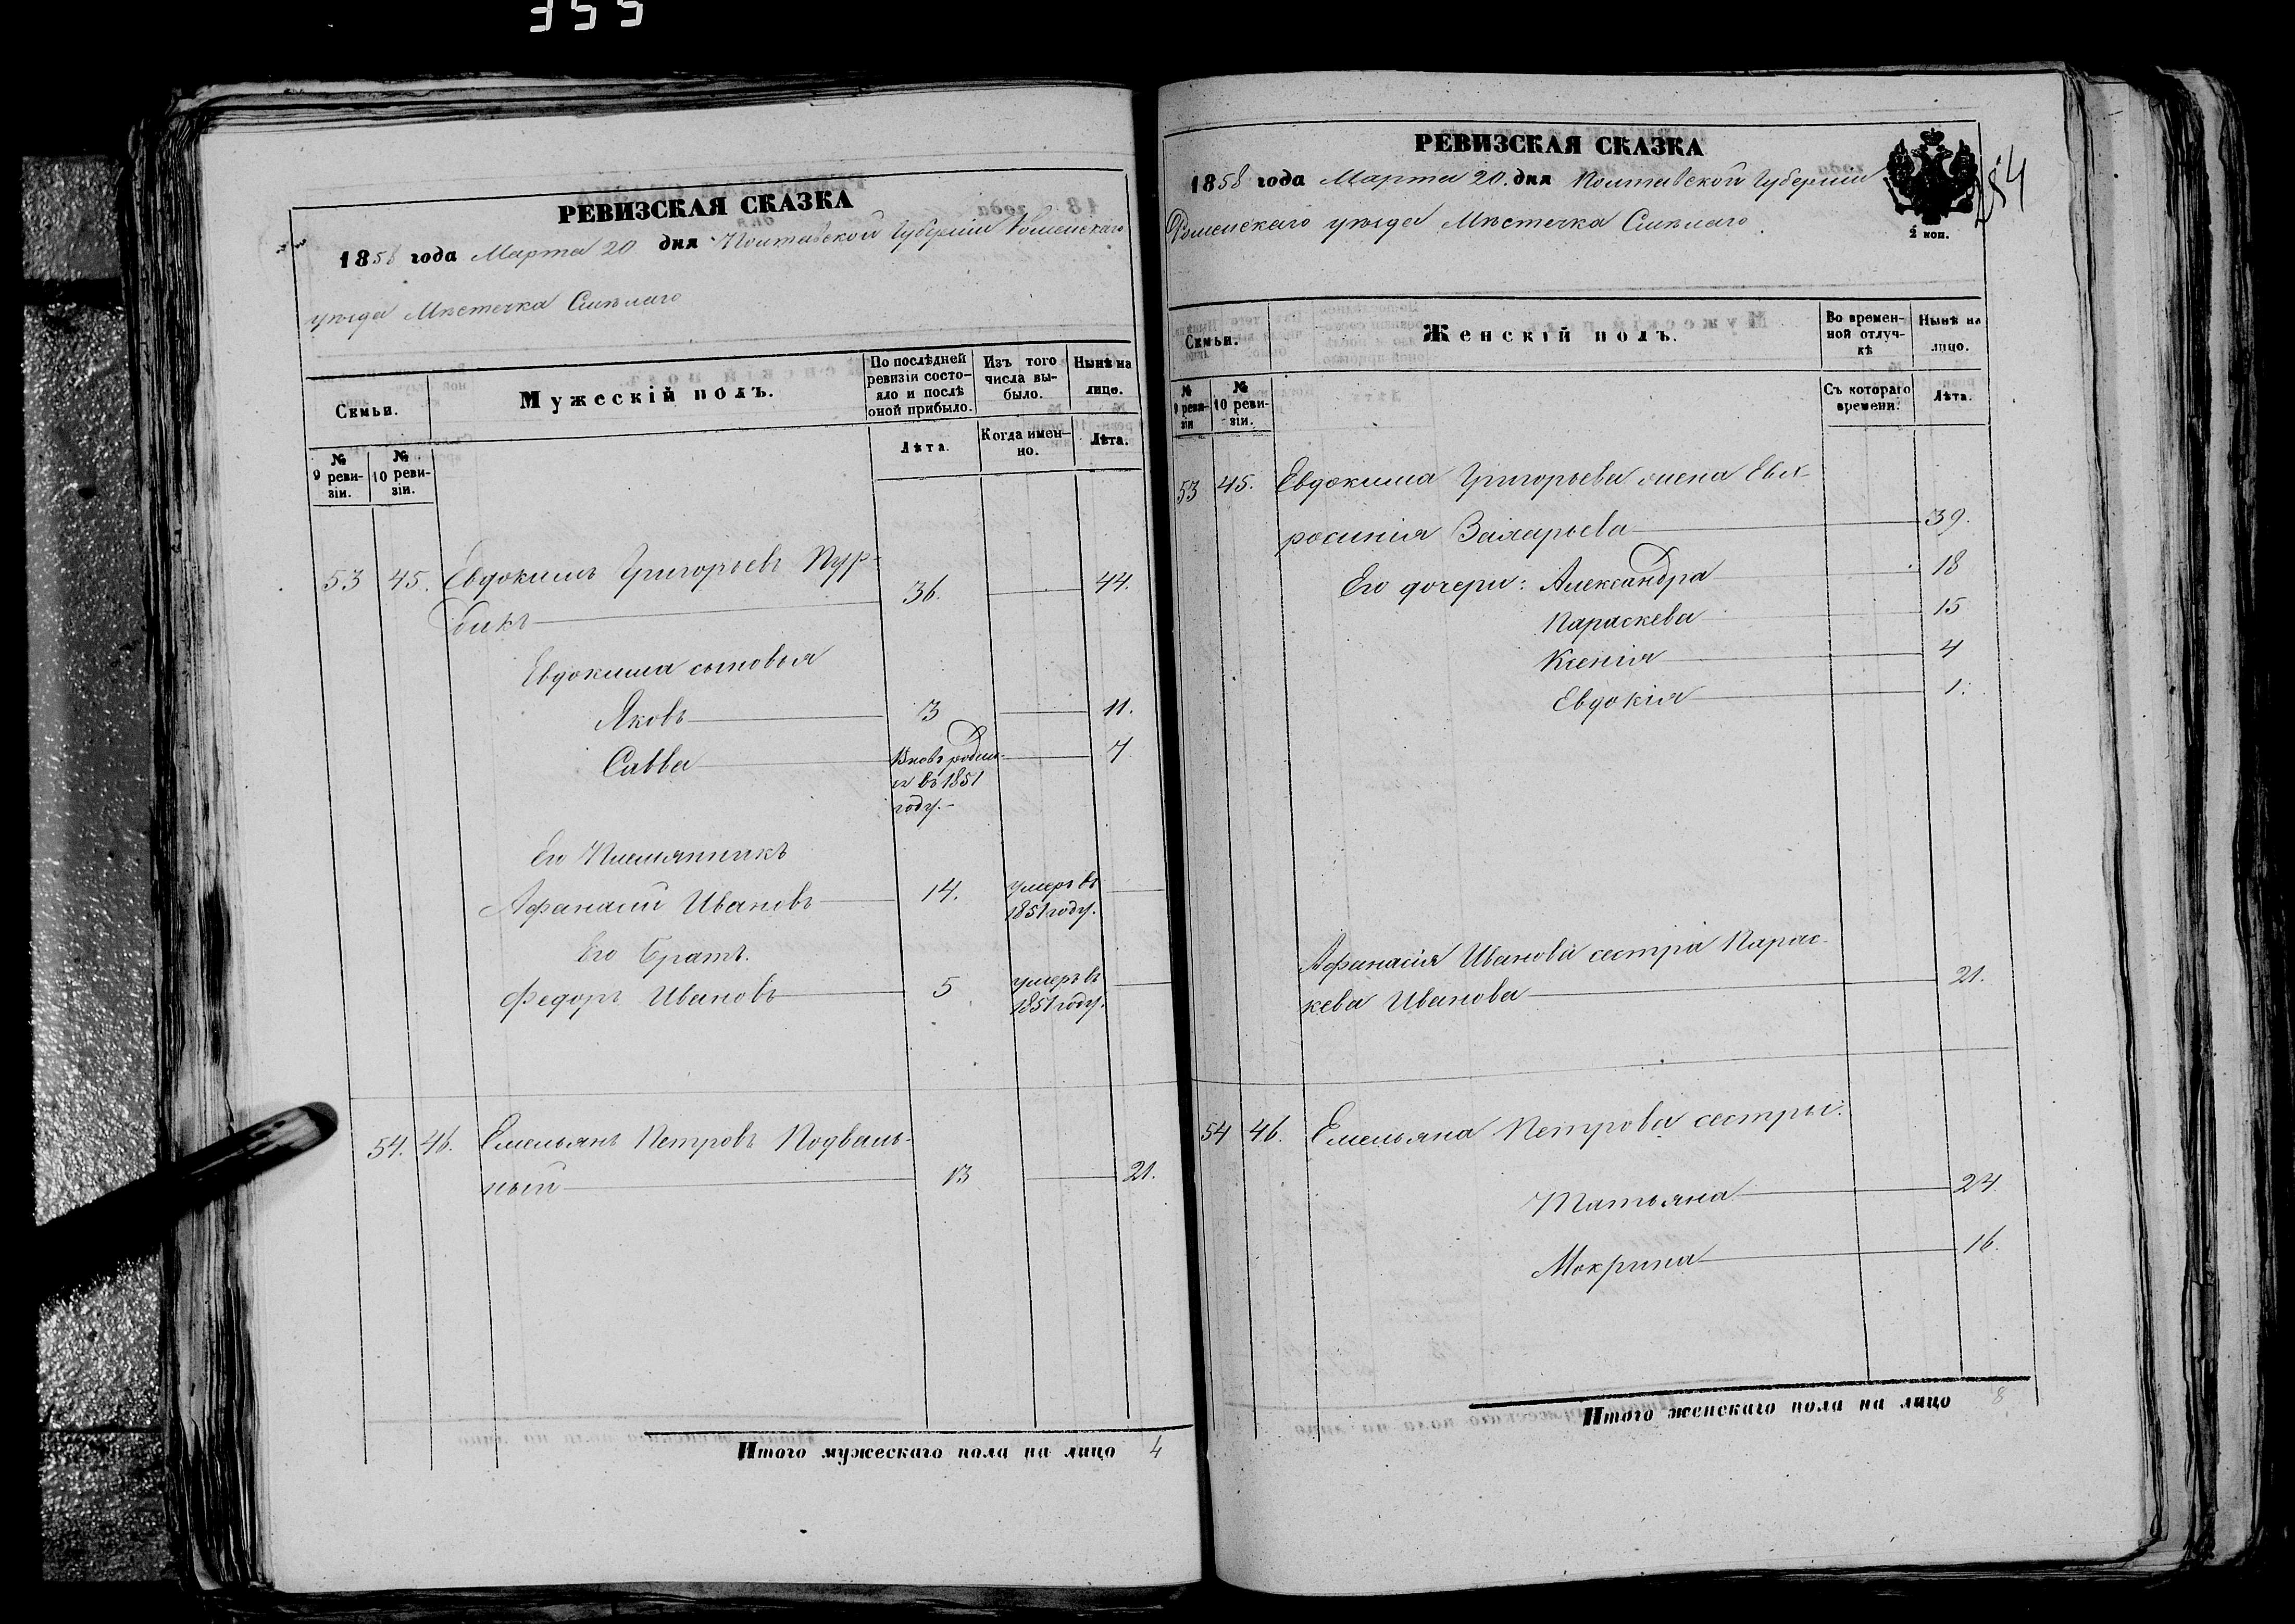 355
РЕВИЗСКАЯ СКАЗКА
1858 года Марта 20 дня Полтавской Губерніи Роменскаго
уѣзда Мѣстечка Смѣлаго
Семьи.
Мужескій полъ.
По послѣдней ревизіи состояло и послѣ оной прибыло.
Изъ того числа выбыло.
Нынѣ на лице.
№ 9 ревизіи.
№ 10 ревизіи.
Лѣта.
Когда именно.
Лѣта.
53 45. Евдокимъ Григорьевъ Пур-
бикъ 36. 44.
Евдокима сыновья
Яковъ 3 11.
Савва Вновь родил- 7
ся въ 1851
году.
Его Племянникъ
Афанасій Ивановъ 14. умеръ въ
1851 году.
Его Братъ.
Федоръ Ивановъ 5 умеръ въ
1851 году.
54. 46. Емельянъ Петровъ Подваль-
ный 13 21.
Итого мужескаго пола на лицо 4
РЕВИЗСКАЯ СКАЗКА
1858 года Марта 20. дня Полтавской Губерніи
Роменскаго уѣзда Мѣстечка Смѣлаго.
2 коп.
Семьи.
Женскій полъ.
Во временной отлучкѣ
Нынѣ на лицо.
№ 9 ревизіи
№ 10 ревизіи.
Съ котораго времени.
Лѣта.
53 45. Евдокима Григорьева жена Евх-
росинія Захарьева 39.
Его дочери: Александра 18
Параскева 15
Ксенія 4
Евдокія 1.
Афанасія Иванова сестра Парас-
кева Иванова 21.
54 46. Емельяна Петрова сестры:
Татьяна 24
Мокрина 16.
Итого женскаго пола на лицо 8